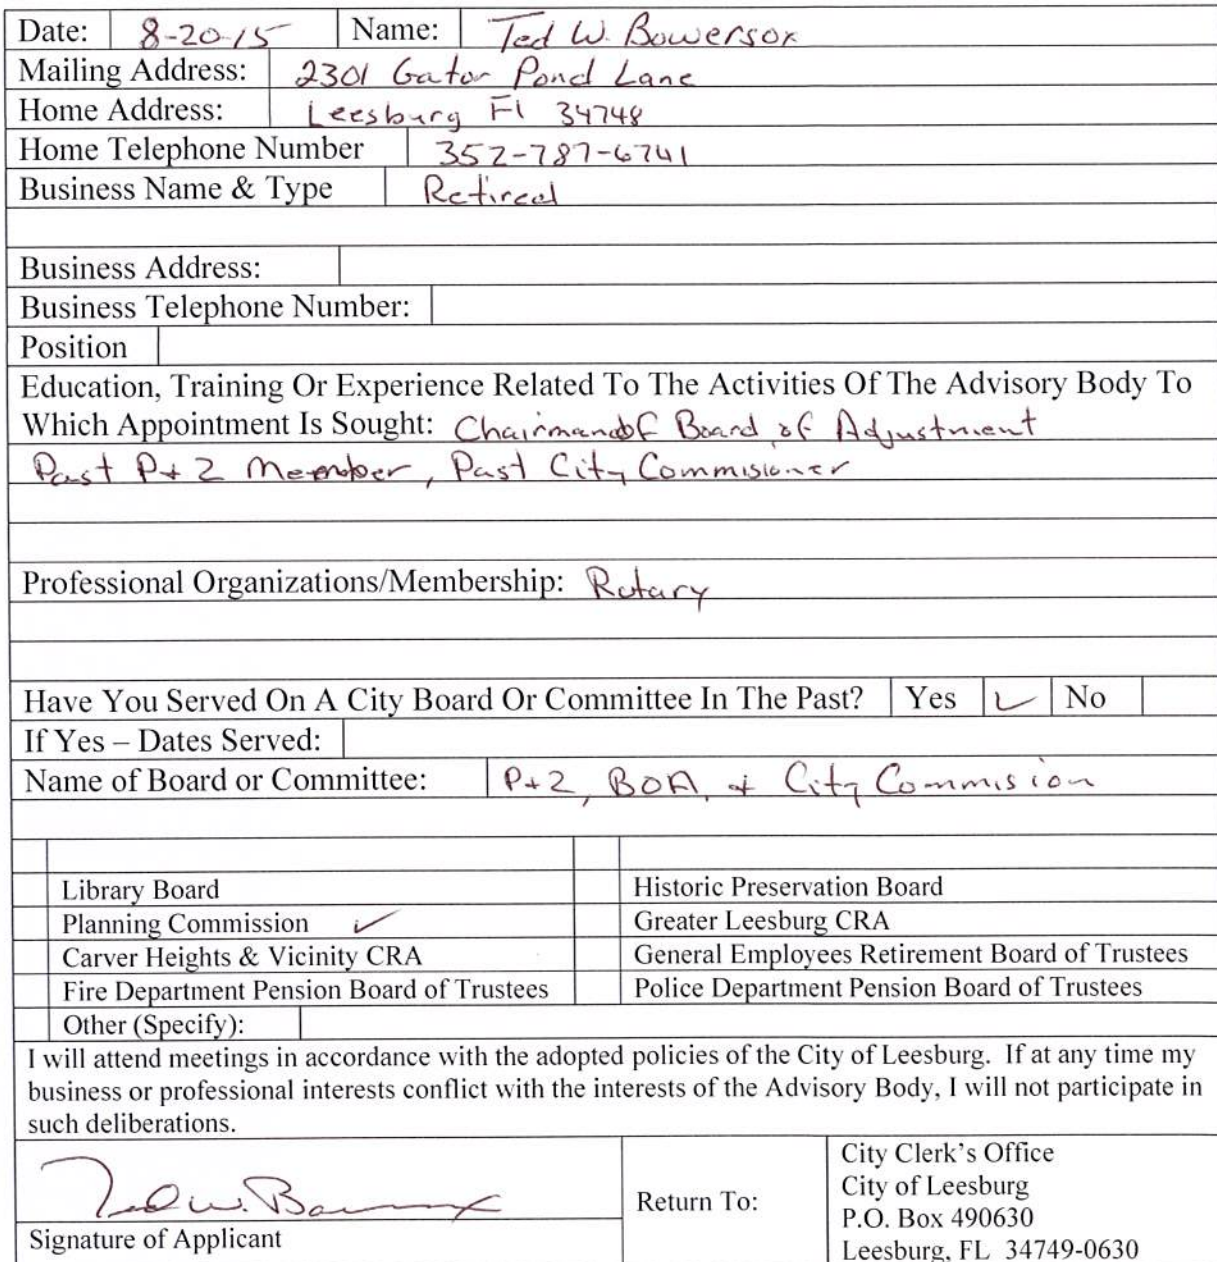 Date: 8-20-15 Name: Ted W. Bowersox
Mailing Address: 2301 Gator Pond Lane
Home Address: Leesburg Fl 34748
Home Telephone Number 352-787-6741
Business Name & Type Retired
Business Address:
Business Telephone Number:
Position
Education, Training Or Experience Related To The Activities Of The Advisory Body To
Which Appointment Is Sought: Chairman of Board of Adjustment
Past P+Z Member, Past City Commisioner
Professional Organizations/Membership: Rotary
Have You Served On A City Board Or Committee In The Past? Yes ✓ No
If Yes – Dates Served:
Name of Board or Committee: P+Z, BOA, + City Commision
Library Board Historic Preservation Board
Planning Commission ✓ Greater Leesburg CRA
Carver Heights & Vicinity CRA General Employees Retirement Board of Trustees
Fire Department Pension Board of Trustees Police Department Pension Board of Trustees
Other (Specify):
I will attend meetings in accordance with the adopted policies of the City of Leesburg. If at any time my
business or professional interests conflict with the interests of the Advisory Body, I will not participate in
such deliberations.
Ted W. Bowersox
Signature of Applicant
Return To:
City Clerk's Office
City of Leesburg
P.O. Box 490630
Leesburg, FL 34749-0630